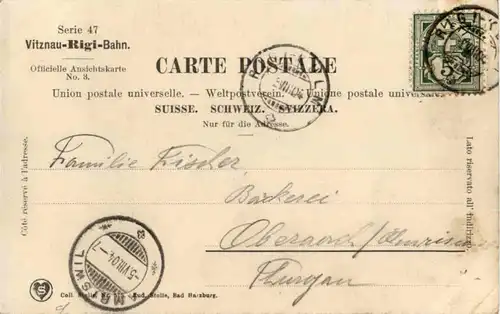 Serie 47
Vitznau-Rigi-Bahn.
Officielle Ansichtskarte
No. 3.
CARTE POSTALE
Union postale universelle. — Weltpostverein. — Unione postale universale
SUISSE. SCHWEIZ. SVIZZERA.
Nur für die Adresse.
Côté réservé à l'adresse.
Lato riservato all' indirizzo.
Familie Fischer
Bäckerei
Oberaach
Thurgau
5
-5.VIII.04.-7
Stolle, Bad Harzburg.